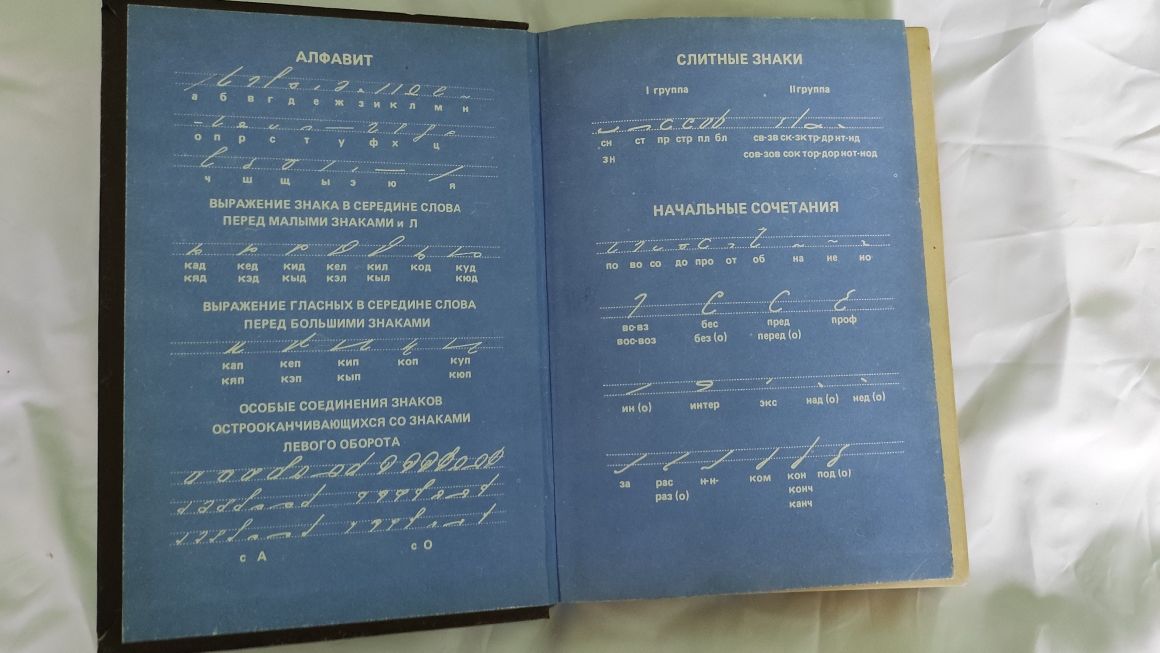 АЛФАВИТ
а б в г д е ж з и к л м н
о п р с т у ф х ц
ч ш щ ы э ю я
ВЫРАЖЕНИЕ ЗНАКА В СЕРЕДИНЕ СЛОВА
ПЕРЕД МАЛЫМИ ЗНАКАМИ и Л
кад кед кид кел кил код куд
кяд кэд кыд кэл кыл кюд
ВЫРАЖЕНИЕ ГЛАСНЫХ В СЕРЕДИНЕ СЛОВА
ПЕРЕД БОЛЬШИМИ ЗНАКАМИ
кап кеп кип коп куп
кяп кэп кып кюп
ОСОБЫЕ СОЕДИНЕНИЯ ЗНАКОВ
ОСТРООКАНЧИВАЮЩИХСЯ СО ЗНАКАМИ
ЛЕВОГО ОБОРОТА
с А с О
СЛИТНЫЕ ЗНАКИ
I группа II группа
сн ст пр стр пл бл св-зв ск-зк тр-др нт-нд
зн сов-зов сок тор-дор нот-нод
НАЧАЛЬНЫЕ СОЧЕТАНИЯ
по во со до про от об на не но
вс-вз бес пред проф
вос-воз без (о) перед (о)
ин (о) интер экс над (о) нед (о)
за рас н-и- ком кон под (о)
раз (о) конч
канч